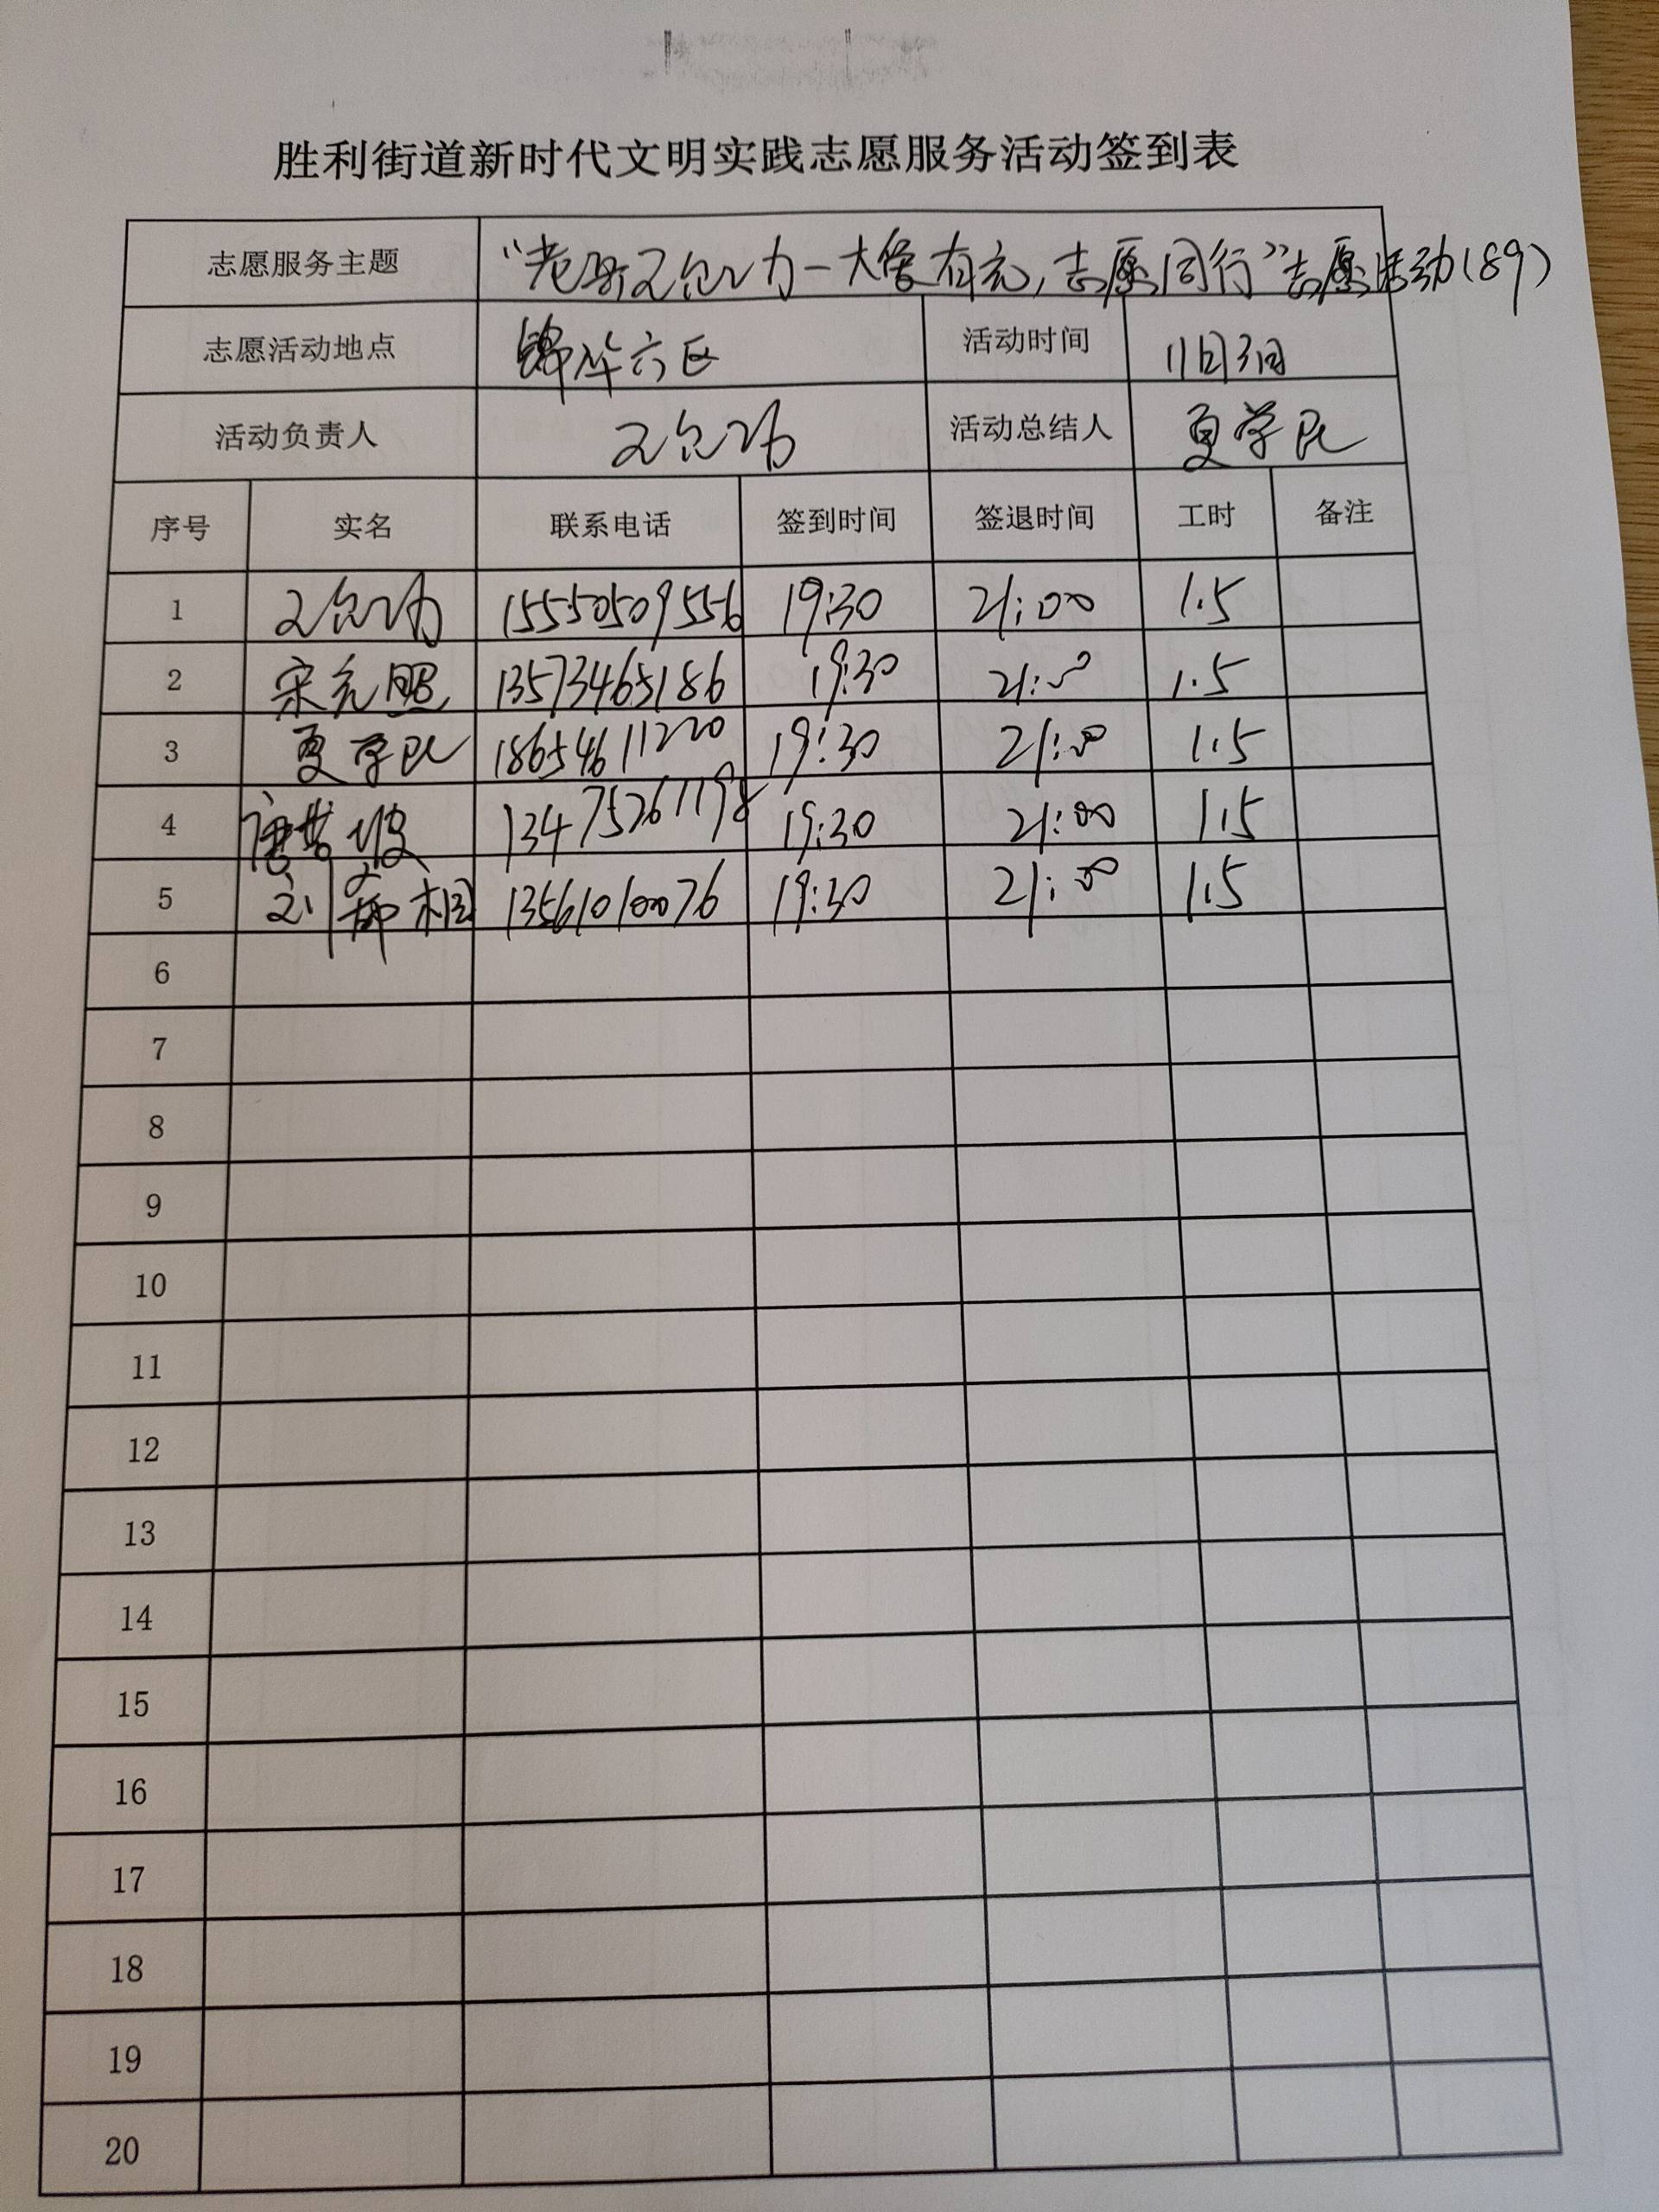 胜利街道新时代文明实践志愿服务活动签到表
志愿服务主题 志愿同行”志愿活动(89)
志愿活动地点 锦华六区 活动时间 11月3日
活动负责人 活动总结人 夏学民
序号 实名 联系电话 签到时间 签退时间 工时 备注
1 15550509556 19:30 21:00 1.5
2 宋元照 13573465186 19:30 21:00 1.5
3 夏学民 18654611220 19:30 21:00 1.5
4 13475261198 19:30 21:00 1.5
5 相 13561010076 19:30 21:00 1.5
6
7
8
9
10
11
12
13
14
15
16
17
18
19
20